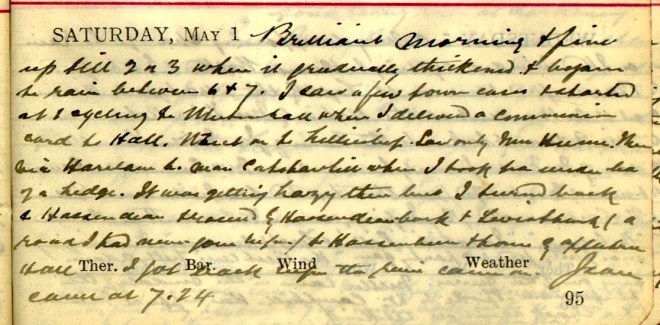 SATURDAY, MAY 1 Brilliant morning & fine
up till 2 or 3 when it gradually thickened & began
to rain between 6 & 7. I saw a few town cases & started
at 1 cycling to when I delivered a commission
card to Hall. on to Saw only Mrs Hume. Then
via to near when I took tea under lea
of a hedge. It was getting hazy then but I turned back
to Hassendean & Hassendeanbank & (a
road I had never gone before) to Hassendean & home by Appletree
Hall Ther. I got Bar. back before Wind the rain came on. Weather Jean
came at 7.24 95